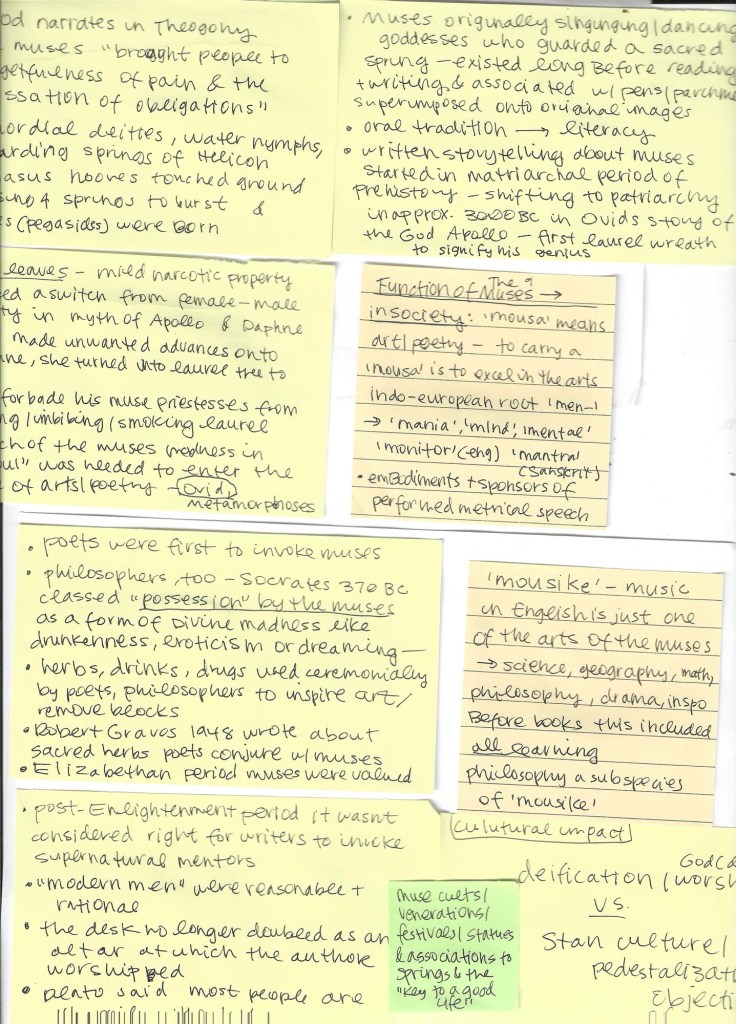 od narrates in Theogony
muses "brought people to
getfulness of pain & the
ssation of obligations"
ordial deities, water nymphs,
arding springs of Helicon
asus hooves touched ground
sing 4 springs to burst &
s (pegasidss) were born
• Muses originally singinging/dancing
goddesses who guarded a sacred
spring – existed long before reading
+ writing & associated w/ pens/parchme
superimposed onto original images
• oral tradition → literacy
• written storytelling about muses
started in matriarchal period of
prehistory – shifting to patriarchy
in approx. 3000 BC in Ovids story of
the God Apollo – first laurel wreath
to signify his genius
leaves – mild narcotic property
ed a switch from female – male
ty in myth of Apollo & Daphne
made unwanted advances onto
ne, she turned into laurel tree to
forbade his muse priestesses from
ng/imbibing/smoking laurel
ch of the muses madness in
oul" was needed to enter the
of arts/poetry – Ovid
metamorphoses
Function of The 9 Muses →
in society: 'mousa' means
art/poetry – to carry a
'mousa' is to excel in the arts
indo-european root 'men–'
→ 'mania', 'mind', 'mental'
'monitor' (-eng) 'mantra'
(Sanskrit)
• emBodiments + sponsors of
performed metrical speech
• poets were first to invoke muses
• philosophers, too – Socrates 370 BC
classed "possession" by the muses
as a form of Divine madness like
drunkenness, eroticism or dreaming –
• herbs, drinks, drugs used ceremonially
by poets, philosophers to inspire art/
remove blocks
• Robert Graves 1948 wrote about
sacred herbs poets conjure w/ muses
• Elizabethan period muses were valued
'mousike' – music
in English is just one
of the arts of the muses
→ science, geography, math,
philosophy, drama, inspo
Before books this included
all learning
philosophy a subspecies
of 'mousike'
• post-Enlightenment period it wasnt
considered right for writers to invoke
supernatural mentors
• "modern men" were reasonable +
rational
• the desk no longer doubled as an
altar at which the author
worshipped
• plato said most people are
muse cults/
venerations/
festivals/ statues
& associations to
springs & the
"key to a good
life"
(culutural impact)
God Co
deification / worsh
vs.
Stan culture/
pedestalizat
objecti